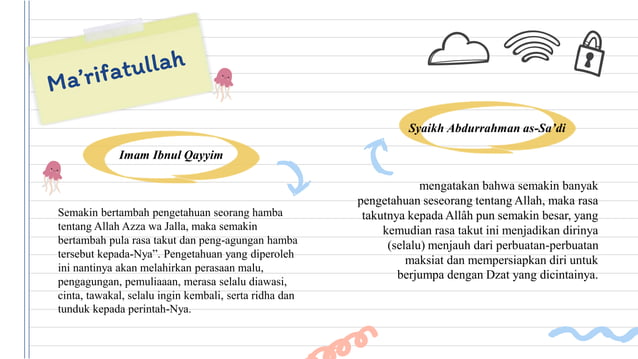 Ma'rifatullah
Imam Ibnul Qayyim
Semakin bertambah pengetahuan seorang hamba
tentang Allah Azza wa Jalla, maka semakin
bertambah pula rasa takut dan peng-agungan hamba
tersebut kepada-Nya”. Pengetahuan yang diperoleh
ini nantinya akan melahirkan perasaan malu,
pengagungan, pemuliaaan, merasa selalu diawasi,
cinta, tawakal, selalu ingin kembali, serta ridha dan
tunduk kepada perintah-Nya.
Syaikh Abdurrahman as-Sa’di
mengatakan bahwa semakin banyak
pengetahuan seseorang tentang Allah, maka rasa
takutnya kepada Allâh pun semakin besar, yang
kemudian rasa takut ini menjadikan dirinya
(selalu) menjauh dari perbuatan-perbuatan
maksiat dan mempersiapkan diri untuk
berjumpa dengan Dzat yang dicintainya.